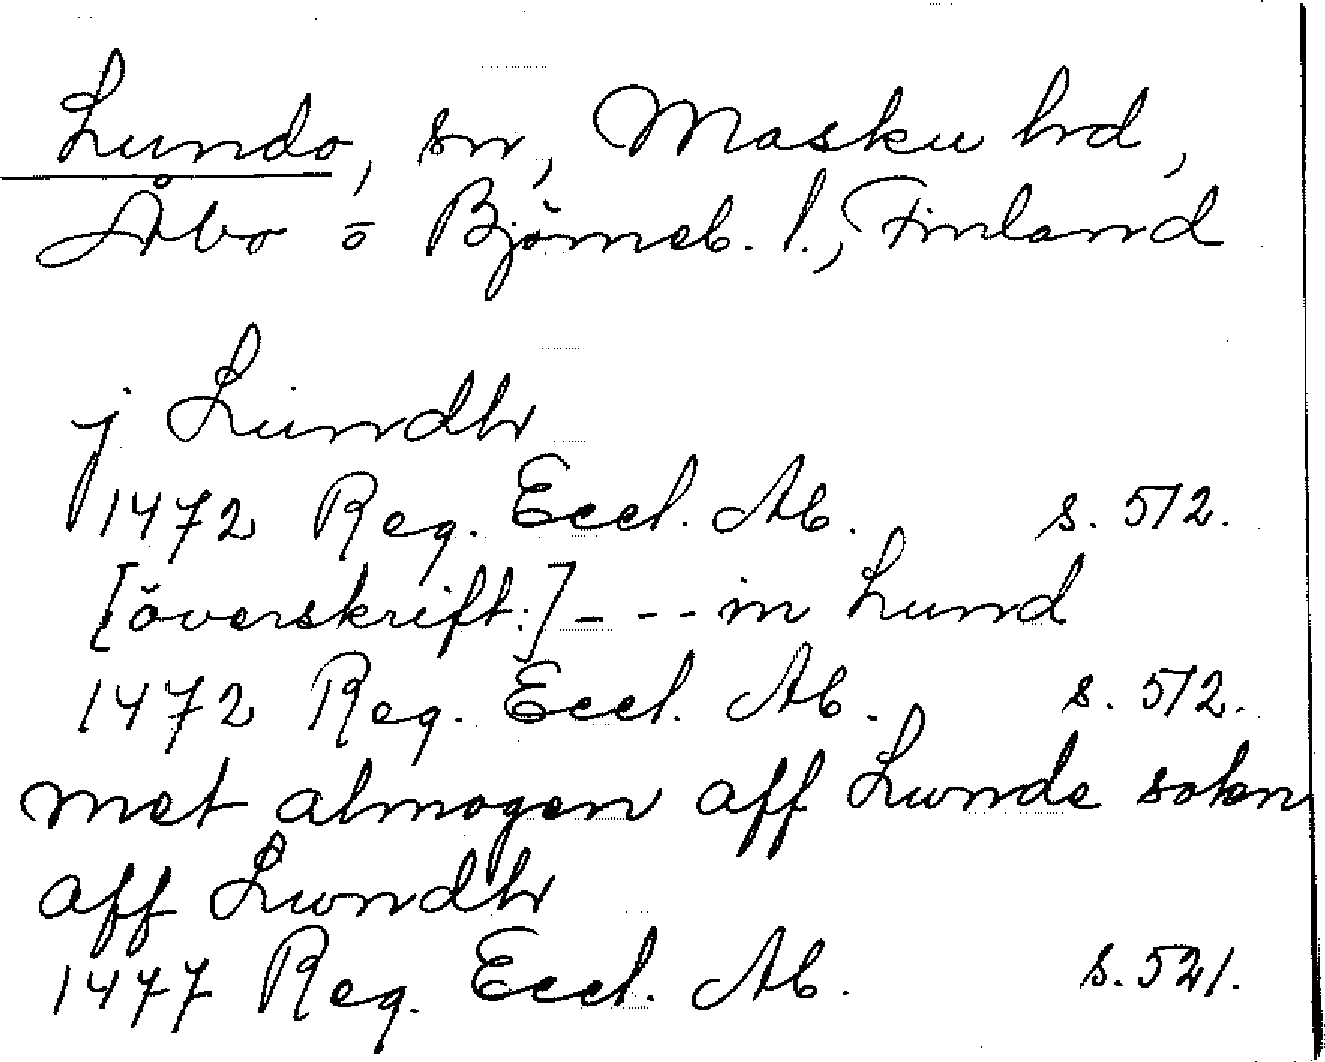 Lundo, sn, Masku hd,
Åbo o Björneb. l., Finland
j Lundh
1472 Reg. Eccl. Ab. s. 512.
[överskrift:] - - - in Lund
1472 Reg. Eccl. Ab. s. 512.
met almogen aff Lwnde sokn
aff Lwndh
1477 Reg. Eccl. Ab. s. 521.